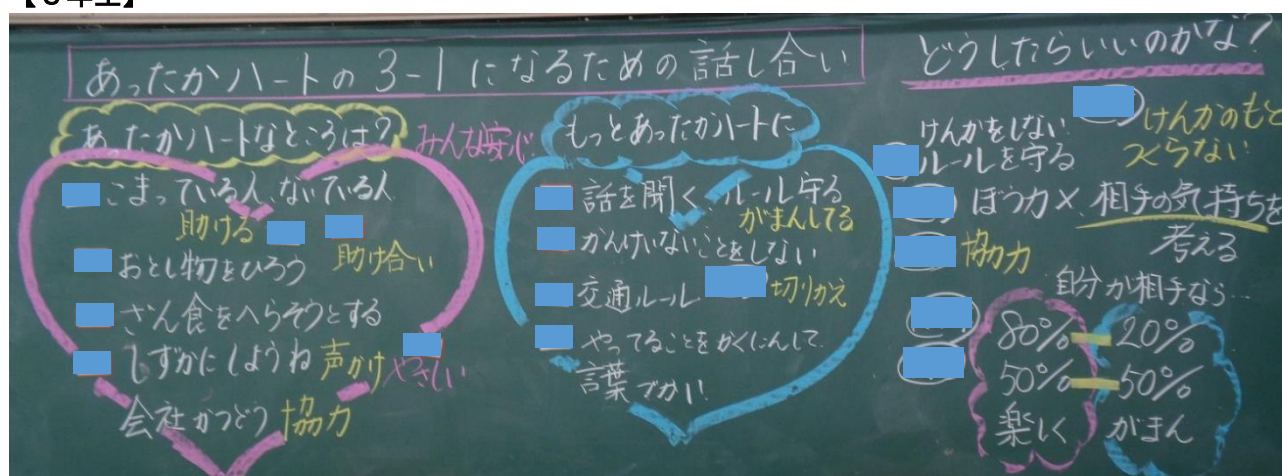 【3年生】
あったかハートの3-1になるための話し合い
あったかハートなところは?
みんな安心
こまっている人、ないている人
助ける
助け合い
おとし物をひろう
ざん食をへらそうとする
しずかにしようね 声かけ やさしい
会社かつどう 協力
もっとあったかハートに
話を聞く、ルール守る
がまんしてる
かんけいないことをしない
交通ルール 切りかえ
やってることをかくにんして
言葉づかい
どうしたらいいのかな?
けんかをしない
ルールを守る
けんかのもと
つくらない
ぼう力×、相手の気持ちを
考える
協力
自分が相手なら…
80% 20%
50% 50%
楽しく がまん